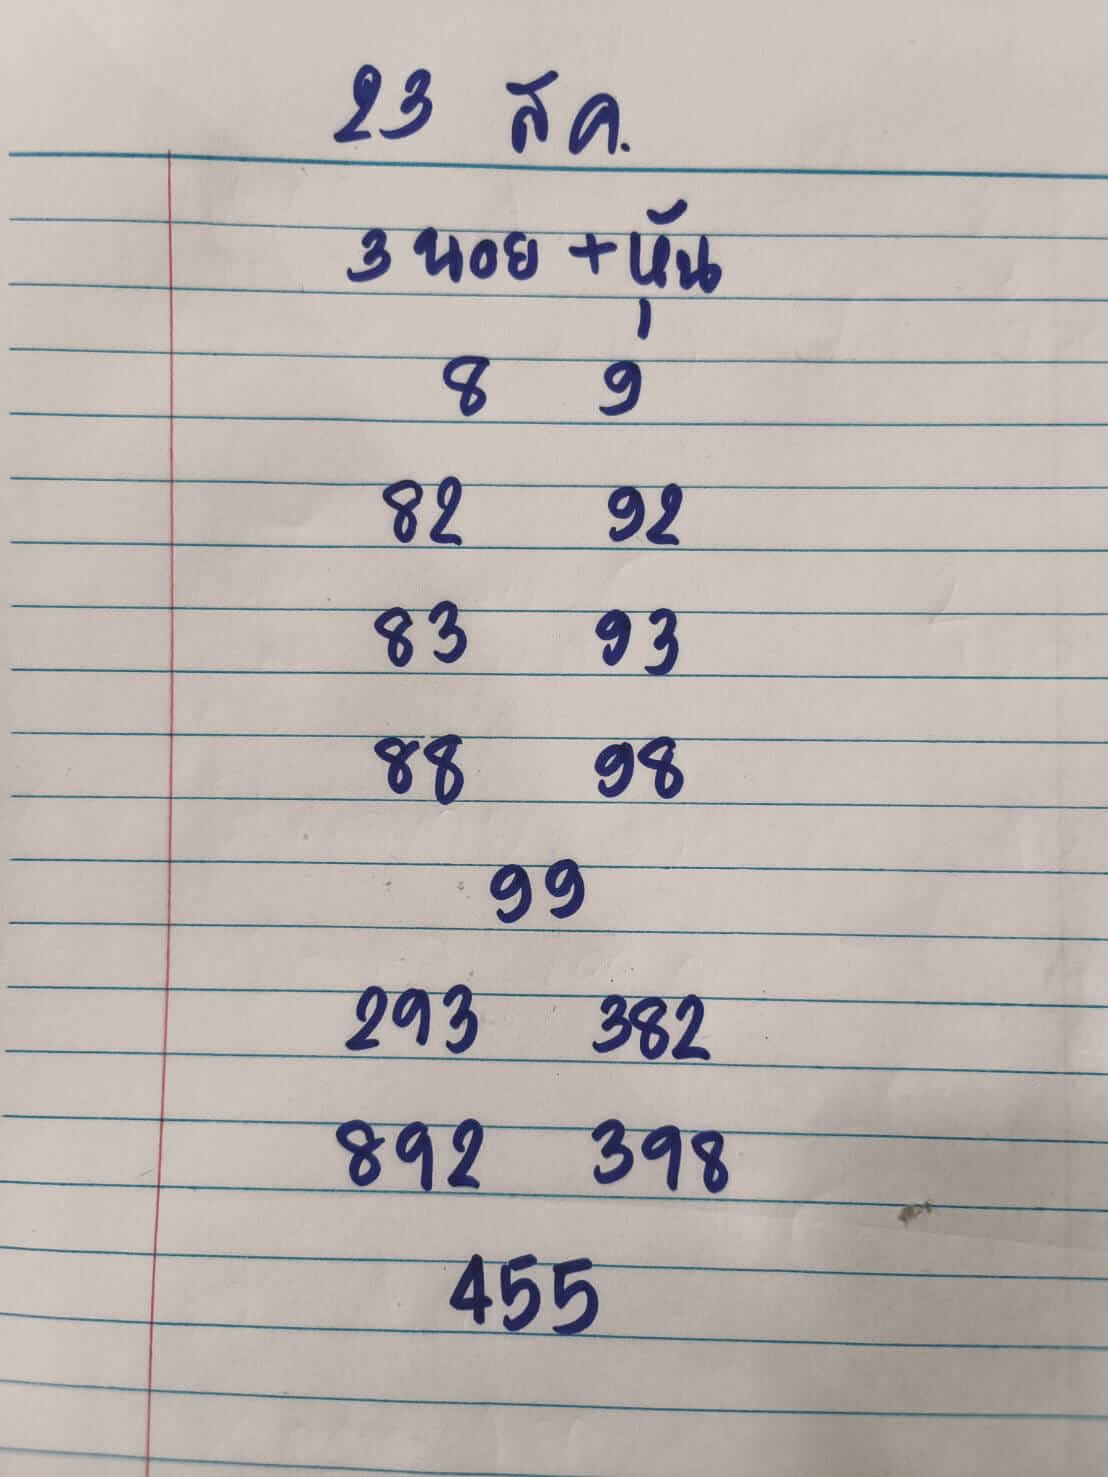 23 สค.
3 นอย + หุ้น
8 9
82 92
83 93
88 98
99
293 382
892 398
455